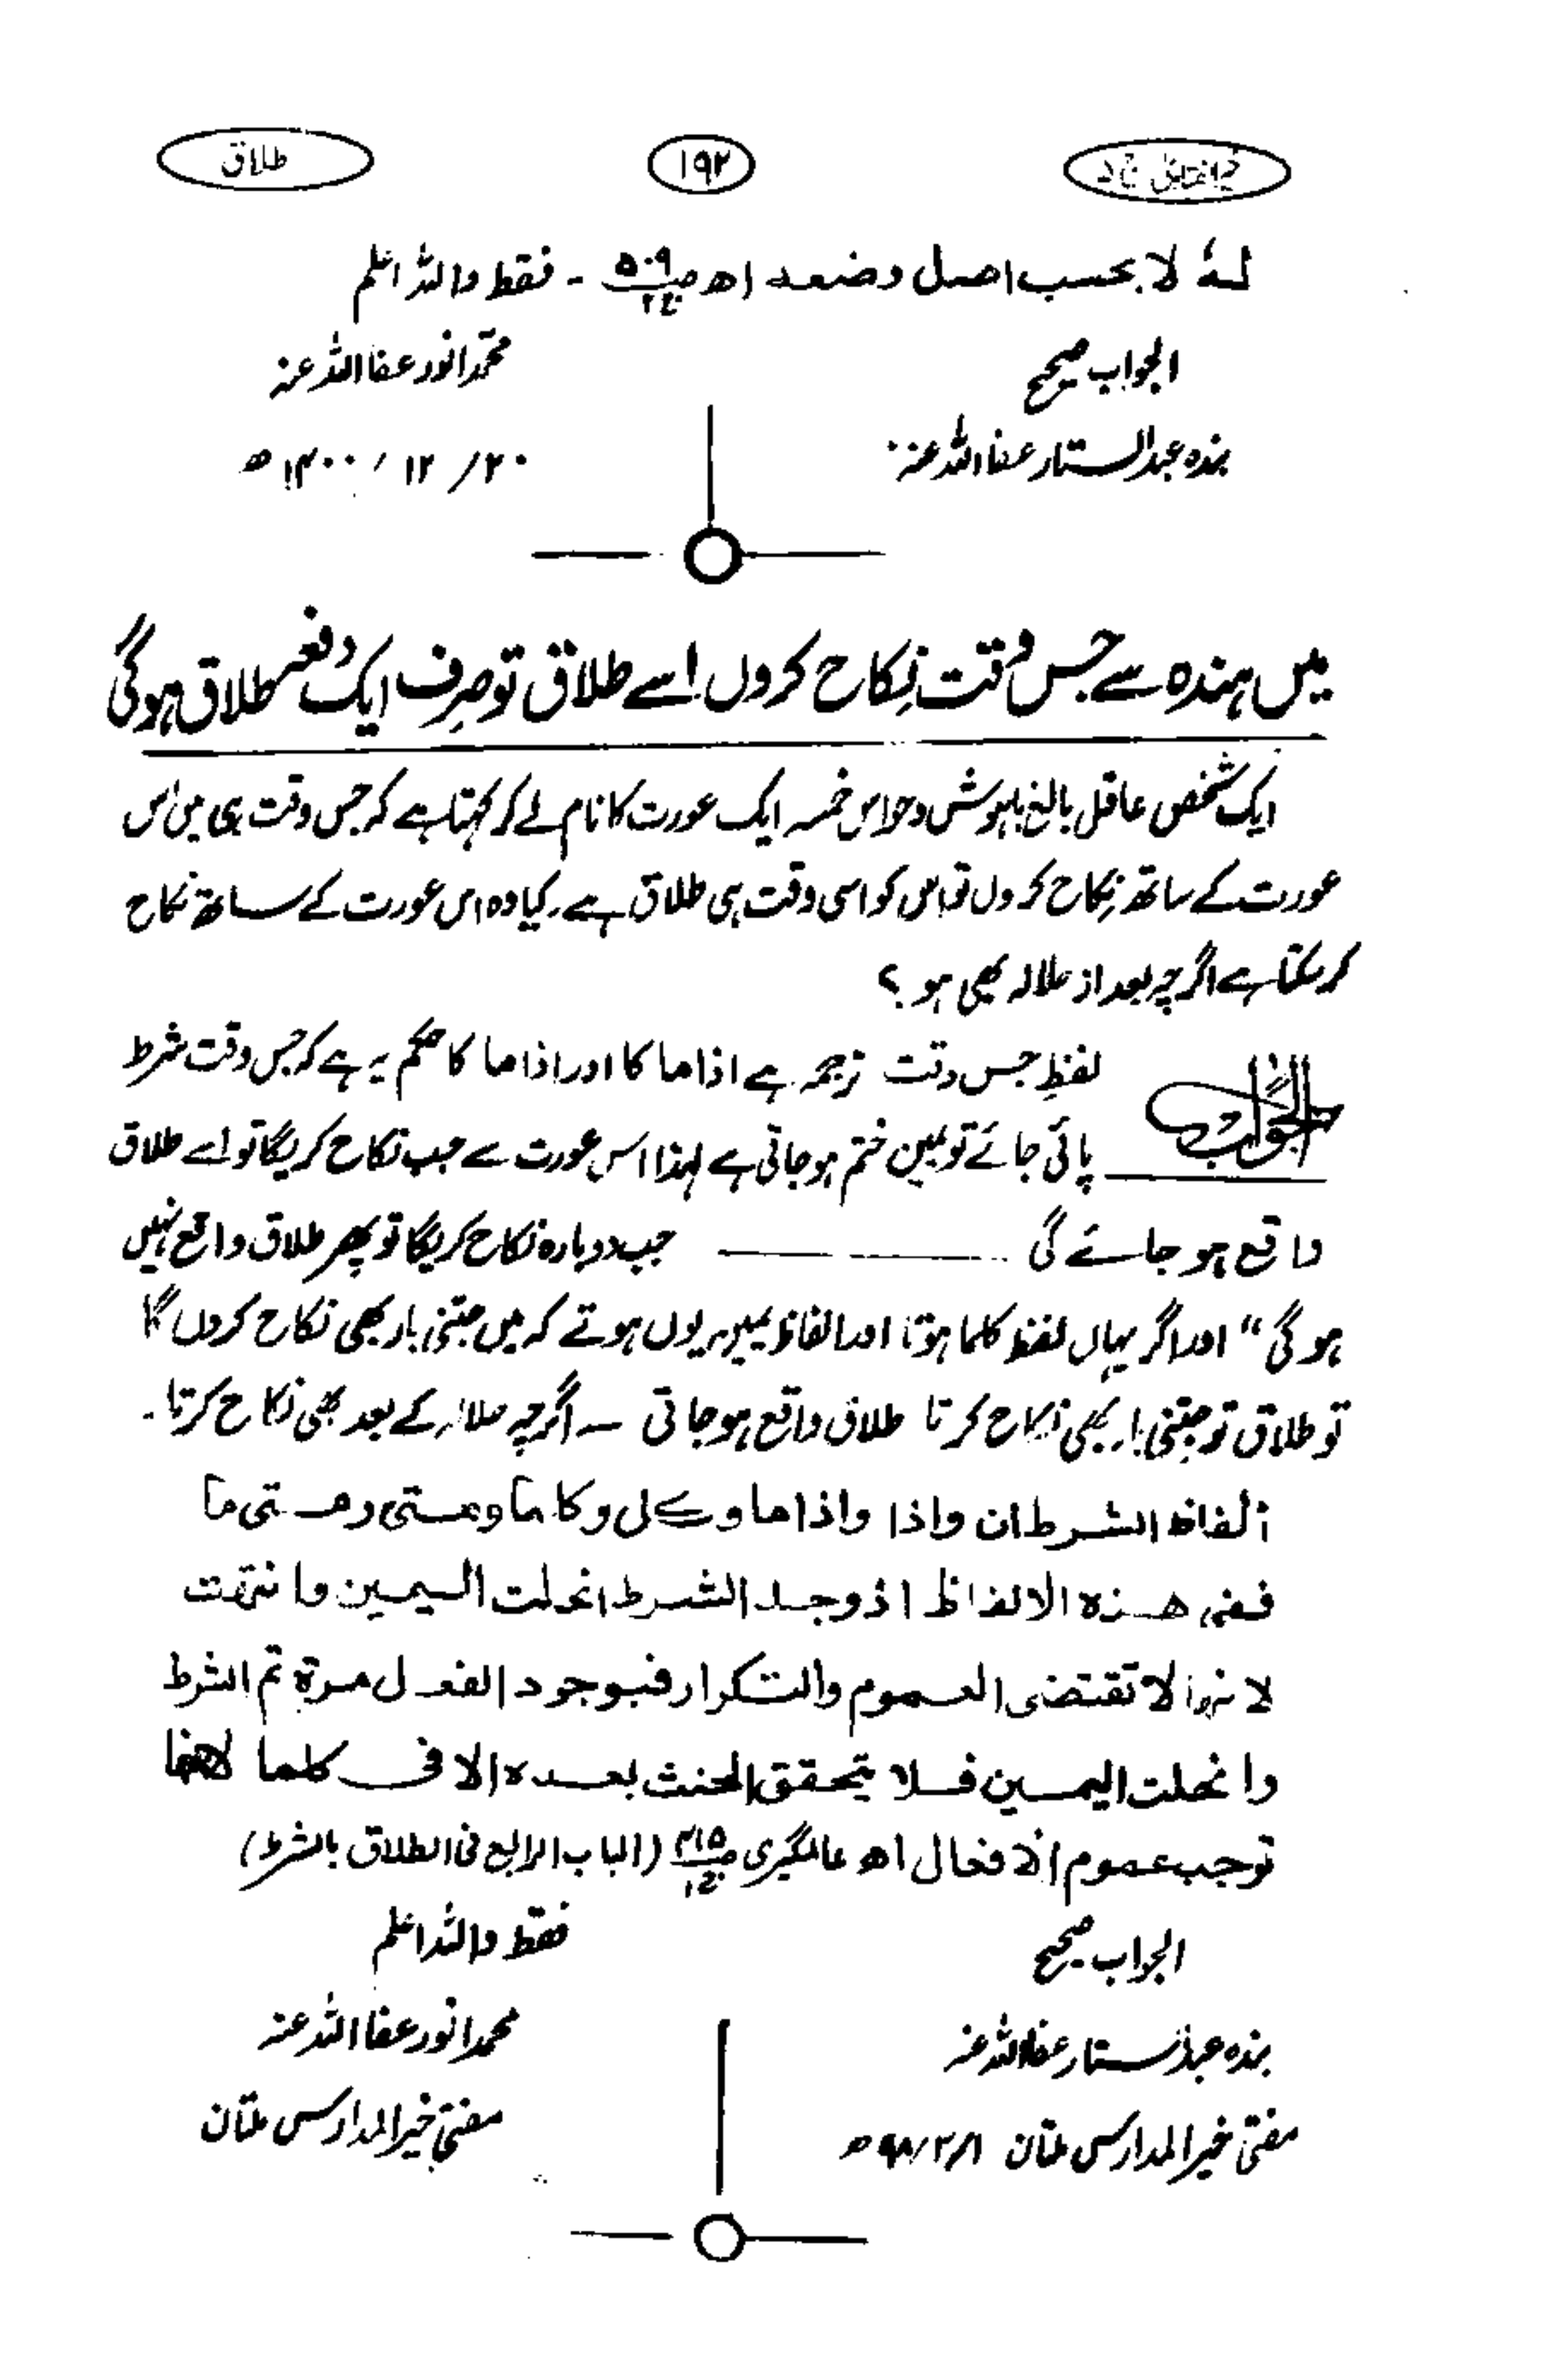 خیر الفتاویٰ ج ۵
۱۹۲
طلاق
لہٗ لا بحسب اصل وضعہ اھ ص۵۰۹ ج۲ - فقط واللہ اعلم
الجواب صحیح
محمد انور عفا اللہ عنہ
بندہ عبدالستار عفا اللہ عنہ
۲۰/ ۱۲ / ۱۴۰۰ ھ
میں ہندہ سے جس وقت نکاح کروں اسے طلاق تو صرف ایک دفعہ طلاق ہوگی
ایک شخص عاقل بالغ بہوش وحواس خمسہ ایک عورت کا نام لے کر کہتا ہے کہ جس وقت بھی میں اس
عورت کے ساتھ نکاح کروں تو اس کو اسی وقت ہی طلاق ہے۔ کیا وہ اس عورت کے ساتھ نکاح
کر سکتا ہے اگرچہ بعد از حلالہ بھی ہو ؟
الجواب
لفظِ جس وقت ترجمہ ہے اذاما کا اور اذاما کا حکم یہ ہے کہ جس وقت شرط
پائی جائے تو یمین ختم ہو جاتی ہے لہذا اس عورت سے جب نکاح کریگا تو اسے طلاق
واقع ہو جائے گی ــــــ جب دوبارہ نکاح کریگا تو پھر طلاق واقع نہیں
ہوگی" اور اگر یہاں لفظ کلما ہوتا اور الفاظ یمین یوں ہوتے کہ میں جتنی بار بھی نکاح کروں گا
تو طلاق تو جتنی بار بھی نکاح کرتا طلاق واقع ہو جاتی ــ اگرچہ حلالہ کے بعد بھی نکاح کرتا۔
الفاظ الشرط ان واذا واذاما وکل وکلما ومتی ومتی ما
ففی ھذہ الالفاظ اذ وجد الشرط انحلت الیمین وانتھت
لانہا لا تقتضی العموم والتکرار فبوجود الفعل مرۃ تم الشرط
وانحلت الیمین فلا یتحقق الحنث بعدہ الا فی کلما لانھا
توجب عموم الافعال اھ عالمگیری ص۴۱۵ ج۱ (الباب الرابع فی الطلاق بالشرط)
الجواب صحیح
فقط واللہ اعلم
بندہ عبدالستار عفا اللہ عنہ
محمد انور عفا اللہ عنہ
مفتی خیر المدارس ملتان
مفتی خیر المدارس ملتان